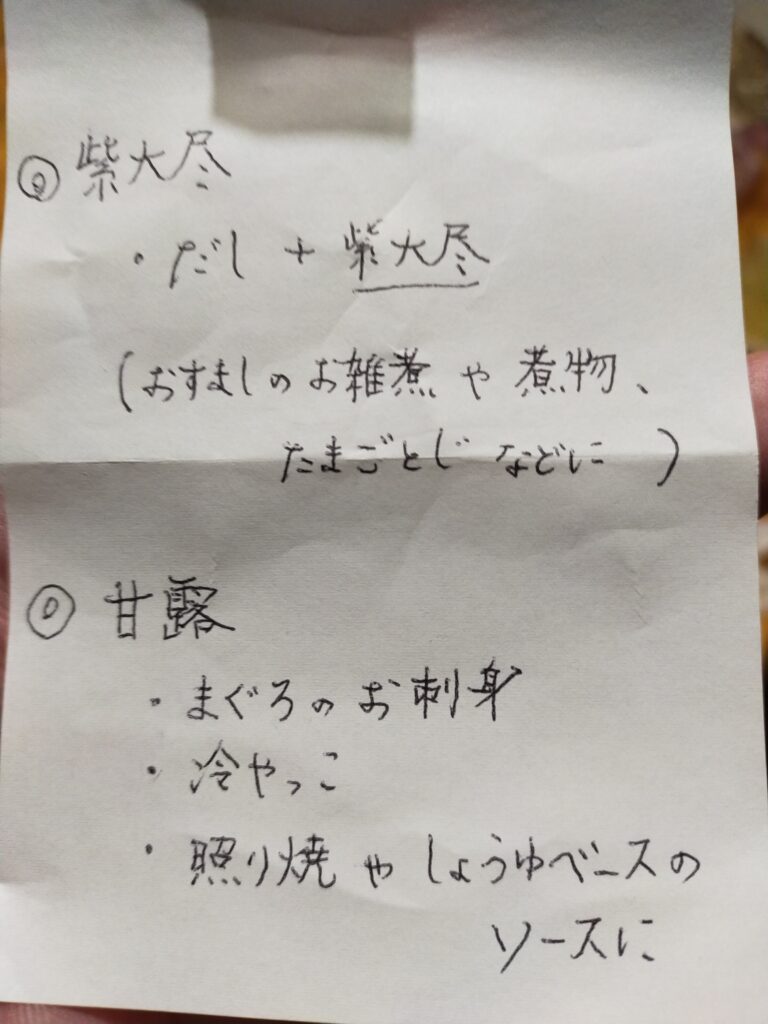 ◎ 紫大尽
・だし + 紫大尽
(おすましのお雑煮や煮物、
たまごとじなどに)
◎ 甘露
・まぐろのお刺身
・冷やっこ
・照り焼やしょうゆベースの
ソースに